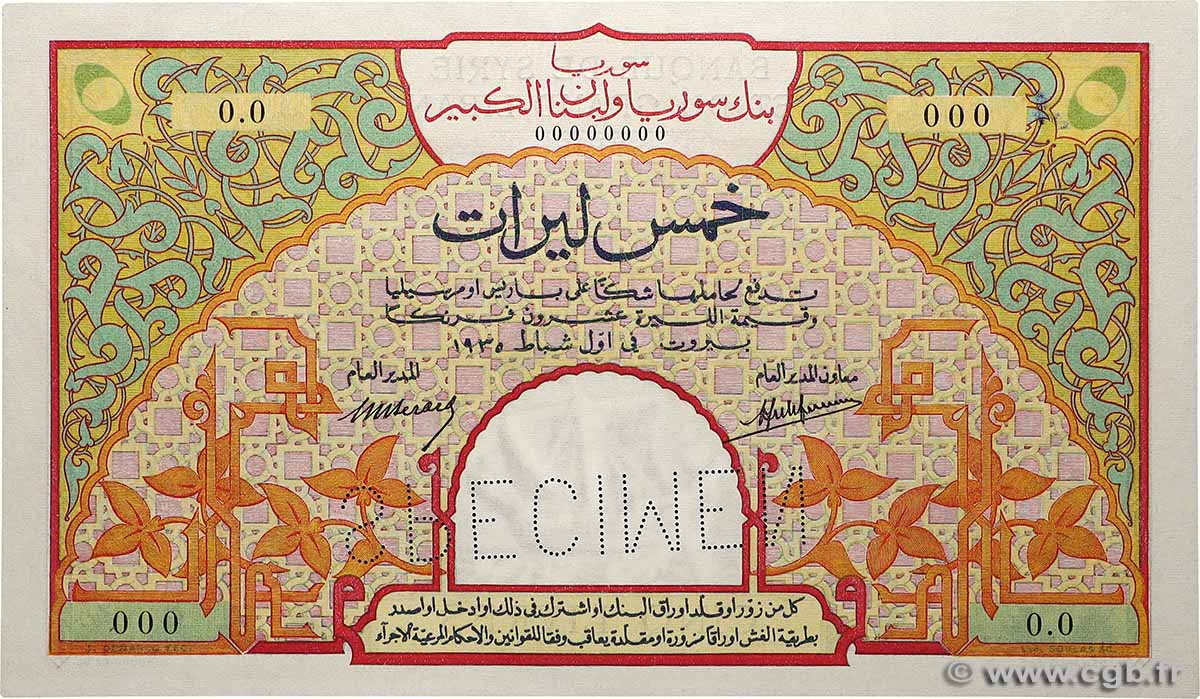 سوريا
بنك سوريا ولبنان الكبير
00000000
0.0
000
خمس ليرات
تدفع لحاملها شكًا على باريس او مرسيليا
وقيمة الليرة عشرون فرنكًا
بيروت في اوّل شباط ١٩٣٥
معاون المدير العام
المدير العام
SPECIMEN
كل من زوّر او قلّد اوراق البنك او اشترك في ذلك او ادخل او اصدر
بطريقة الغش اوراقًا مزورة او مقلدة يعاقب وفقا للقوانين والاحكام المرعية الاجرآء
000
0.0
© www.cgb.fr